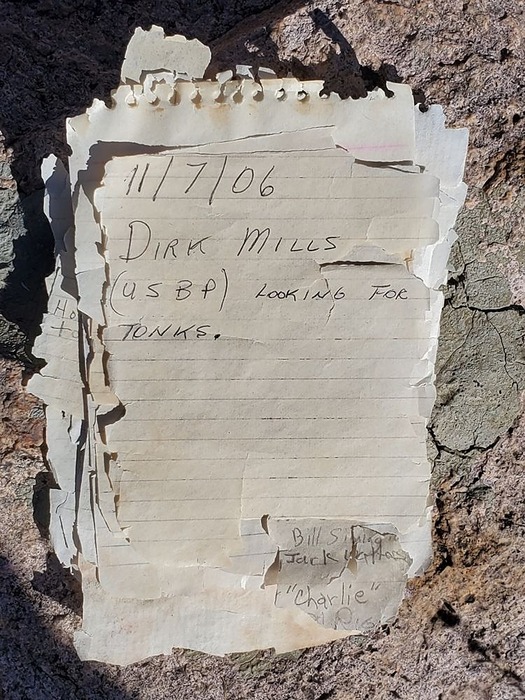 11/7/06
DIRK MILLS
(USBP) LOOKING FOR
TONKS.
Ho
Bill
Jack
"Charlie"